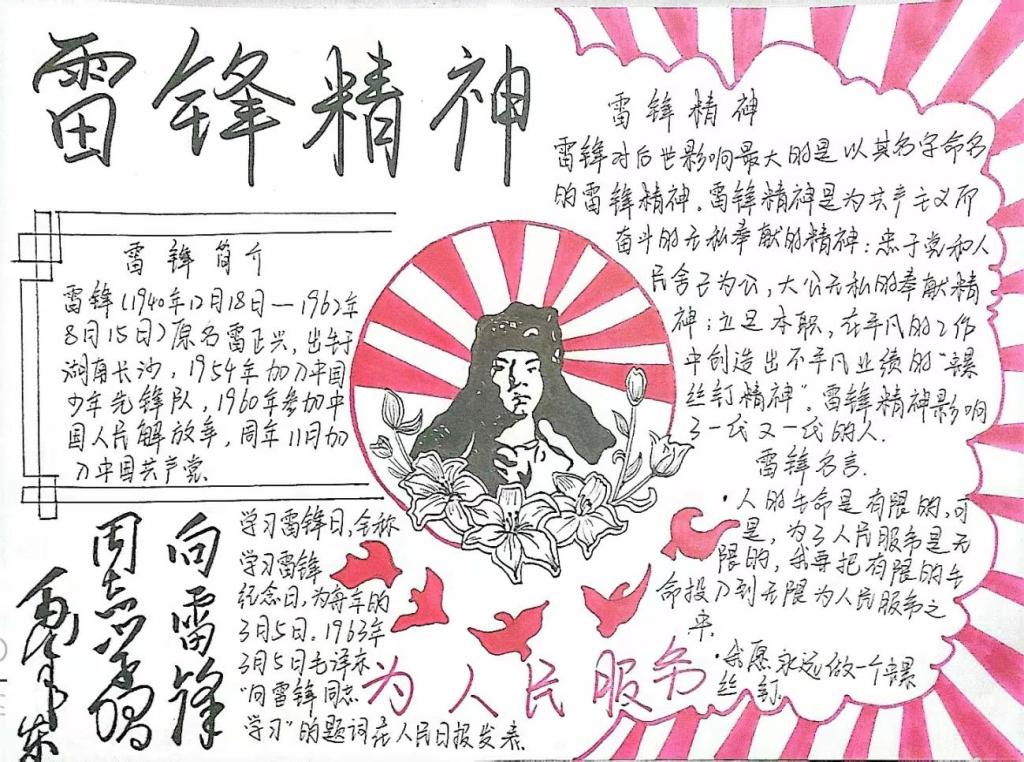 雷锋精神
雷锋简介
雷锋(1940年12月18日—1962年
8月15日)原名雷正兴,出生于
湖南长沙,1954年加入中国
少年先锋队,1960年参加中
国人民解放军,同年11月加
入中国共产党.
向雷锋
同志学习
毛泽东
学习雷锋日,全称
学习雷锋
纪念日,为每年的
3月5日.1963年
3月5日毛泽东
"向雷锋同志
学习"的题词在人民日报发表.
为人民服务
雷锋精神
雷锋对后世影响最大的是以其名字命名
的雷锋精神.雷锋精神是为共产主义而
奋斗的无私奉献的精神;忠于党和人
民舍己为公,大公无私的奉献精
神;立足本职,在平凡的工作
中创造出不平凡业绩的"螺
丝钉精神".雷锋精神影响
了一代又一代的人.
雷锋名言.
·人的生命是有限的,可
是,为了人民服务是无
限的,我要把有限的生
命投入到无限为人民服务之
中.
·我愿永远做一个螺
丝钉.